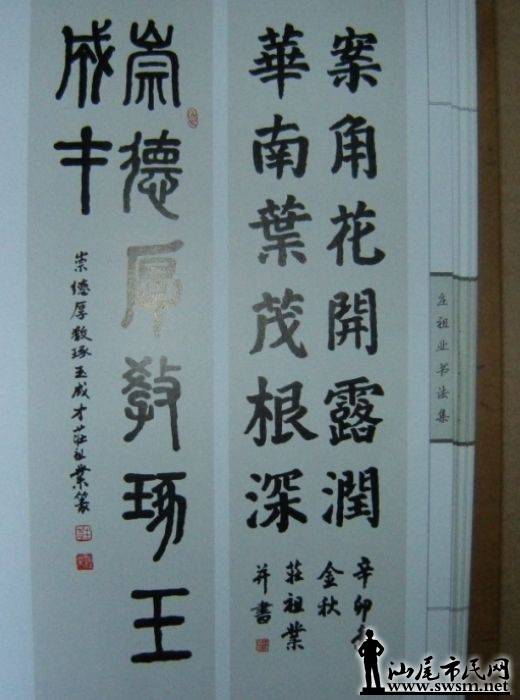 案角花開露潤
華南葉茂根深
辛卯年
金秋
莊祖業
并書
崇德厚教琢玉
成才
崇德厚教琢玉成才莊祖業篆
庄祖业书法集
汕尾市民网
www.swsm.net